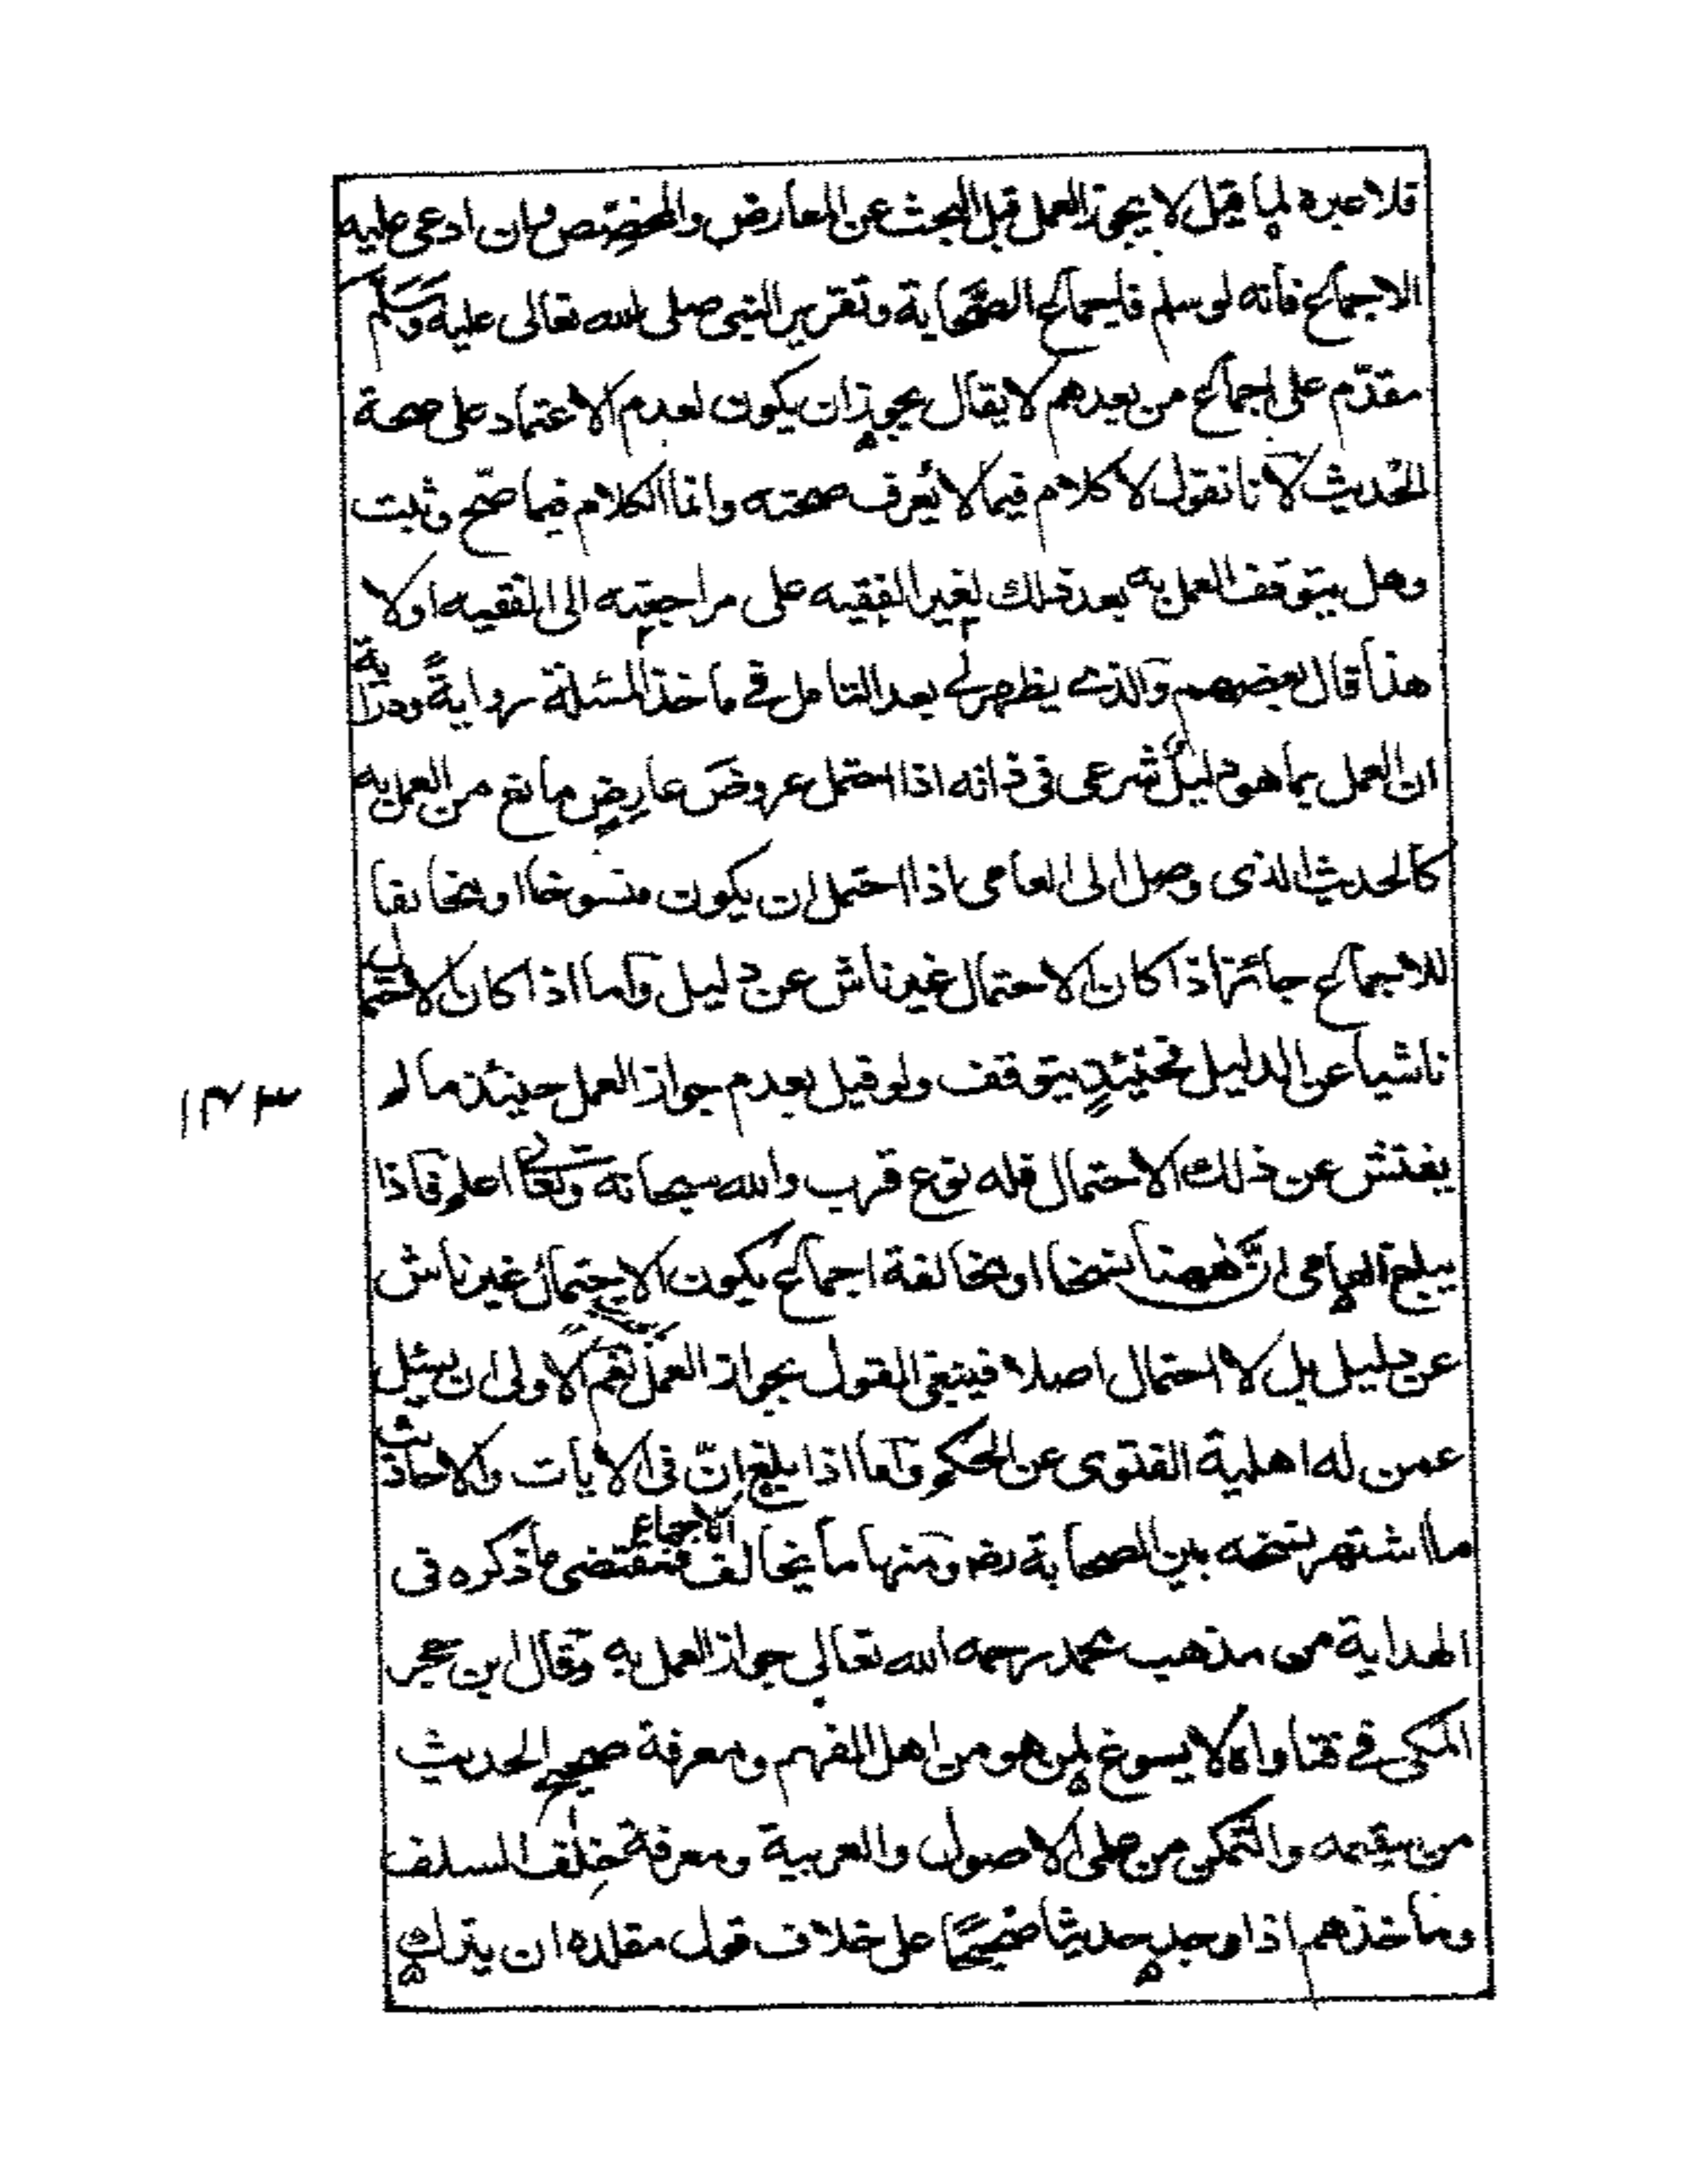 فلا عبرة لما قيل لا يجوز العمل قبل البحث عن المعارض والمخصص وان ادعى عليه
الاجماع فانه لو سلم فاجماع الصحابة وتقرير النبى صلى الله تعالى عليه وسلم
مقدّم على اجماع من بعدهم لا يقال يجوز ان يكون لعدم الاعتماد على صحة
الحديث لانا نقول لا كلام فيما لا يعرف صحته وانما الكلام فيما صحّ وثبت
وهل يتوقف العمل به بعد ذلك لغير الفقيه على مراجعته الى الفقيه او لا
هذا قال بعضهم والذى يظهر لى بعد التامل فى ماخذ المسئلة رواية ودراية
ان العمل بما هو دليل شرعى فى ذاته اذا احتمل عروض عارض مانع من العمل به
كالحديث الذى وصل الى العامى اذا احتمل ان يكون منسوخا او مخالفا
للاجماع جائز اذا كان الاحتمال غير ناش عن دليل واما اذا كان الاحتمال
ناشيا عن الدليل فحينئذٍ يتوقف ولو قيل بعدم جواز العمل حينئذ ما لم
يفتش عن ذلك الاحتمال فله نوع قرب والله سبحانه وتعالى اعلم فاذا
يبلغ العامى انّ ههنا نسخا او مخالفة اجماع يكون الاحتمال غير ناش
عن دليل بل لا احتمال اصلا فينبغى القول بجواز العمل نعم الاولى ان يسئل
عمن له اهلية الفتوى عن الحكم واما اذا بلغ انّ فى الايات والاحاديث
ما اشتهر نسخه بين الصحابة رضـ ومنها ما يخالف الاجماع فمقتضى ما ذكره فى
الهداية من مذهب محمد رحمه الله تعالى جواز العمل به وقال ابن حجر
المكى فى فتاواه لا يسوغ لمن هو من اهل الفهم ومعرفة صحيح الحديث
من سقيمه والتمكن من على الاصول والعربية ومعرفة خلف السلف
وماخذهم اذا وجد حديثا صحيحًا على خلاف قول مقلده ان يترك
١٢٧٣